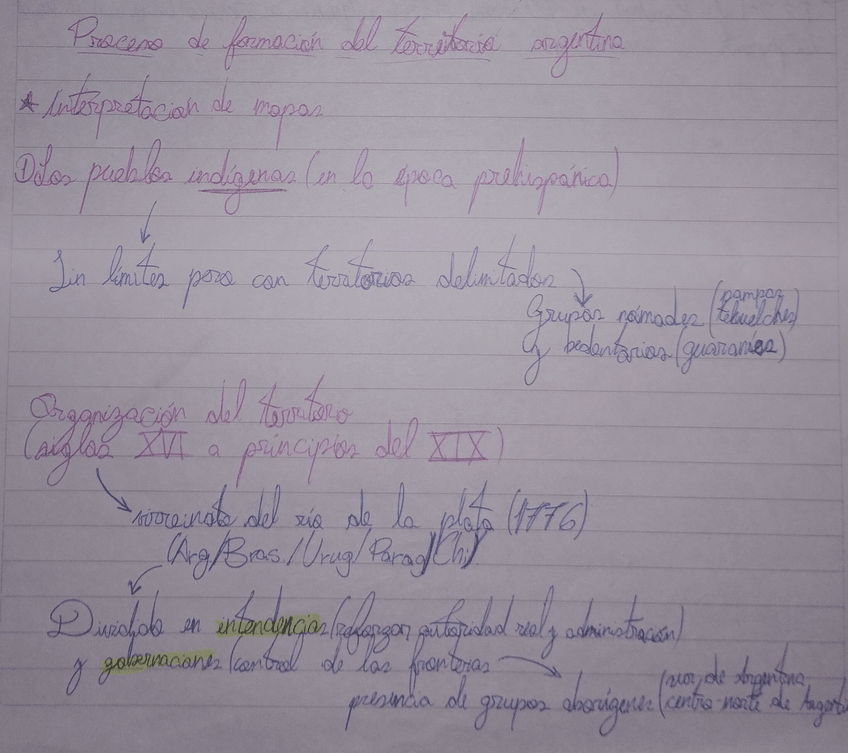 Proceso de formación del territorio argentino
* Interpretación de mapas
1) Los pueblos indígenas (en la época prehispánica)
Sin límites pero con territorios delimitados
Grupos nómades (pampas
tehuelches)
y sedentarios (guaraníes)
Organización del territoro
(siglos XVI a principios del XIX)
virreinato del río de la plata (1776)
(Arg/Bras./Urug/Parag/Chi)
Dividido en intendencias (refuerzan autoridad real y administración)
y gobernaciones (control de las fronteras
presencia de grupos aborígenes (sur de Argentina
centro-norte de Argenti